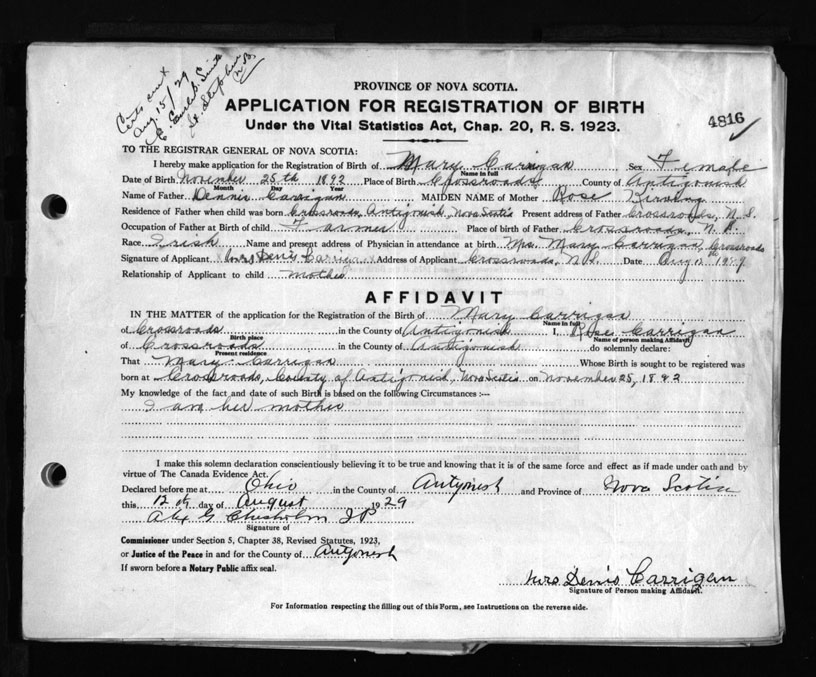 Certs sent
Aug 15/29
St. Stephen
N.B.
PROVINCE OF NOVA SCOTIA.
APPLICATION FOR REGISTRATION OF BIRTH
4816
Under the Vital Statistics Act, Chap. 20, R. S. 1923.
TO THE REGISTRAR GENERAL OF NOVA SCOTIA:
I hereby make application for the Registration of Birth of Mary Carrigan Sex Female
Name in full
Date of Birth November 25th 1892 Place of Birth Crossroads County of Antigonish
Month Day Year
Name of Father Dennis Carrigan MAIDEN NAME of Mother Rose
Residence of Father when child was born Crossroads, Antigonish, Nova Scotia Present address of Father Crossroads, N.S.
Occupation of Father at Birth of child Farmer Place of birth of Father Crossroads, N.S.
Race Irish Name and present address of Physician in attendance at birth Mrs. Mary Carrigan, Crossroads
Signature of Applicant Mrs Denis Carrigan Address of Applicant Crossroads, N.S. Date Aug 12th 1929
Relationship of Applicant to child mother
AFFIDAVIT
IN THE MATTER of the application for the Registration of the Birth of Mary Carrigan
Name in full
of Crossroads in the County of Antigonish I, Rose Carrigan
Birth place Name of person making Affidavit
of Crossroads in the County of Antigonish do solemnly declare:
Present residence
That Mary Carrigan Whose Birth is sought to be registered was
born at Crossroads, County of Antigonish, Nova Scotia on November 25, 1892
My knowledge of the fact and date of such Birth is based on the following Circumstances :—
I am her mother
I make this solemn declaration conscientiously believing it to be true and knowing that it is of the same force and effect as if made under oath and by
virtue of The Canada Evidence Act.
Declared before me at Ohio in the County of Antigonish and Province of Nova Scotia
this 12th day of August 1929
Alex G Chisholm JP
Signature of
Commissioner under Section 5, Chapter 38, Revised Statutes, 1923,
or Justice of the Peace in and for the County of Antigonish
If sworn before a Notary Public affix seal.
Mrs Denis Carrigan
Signature of Person making Affidavit.
For Information respecting the filling out of this Form, see Instructions on the reverse side.